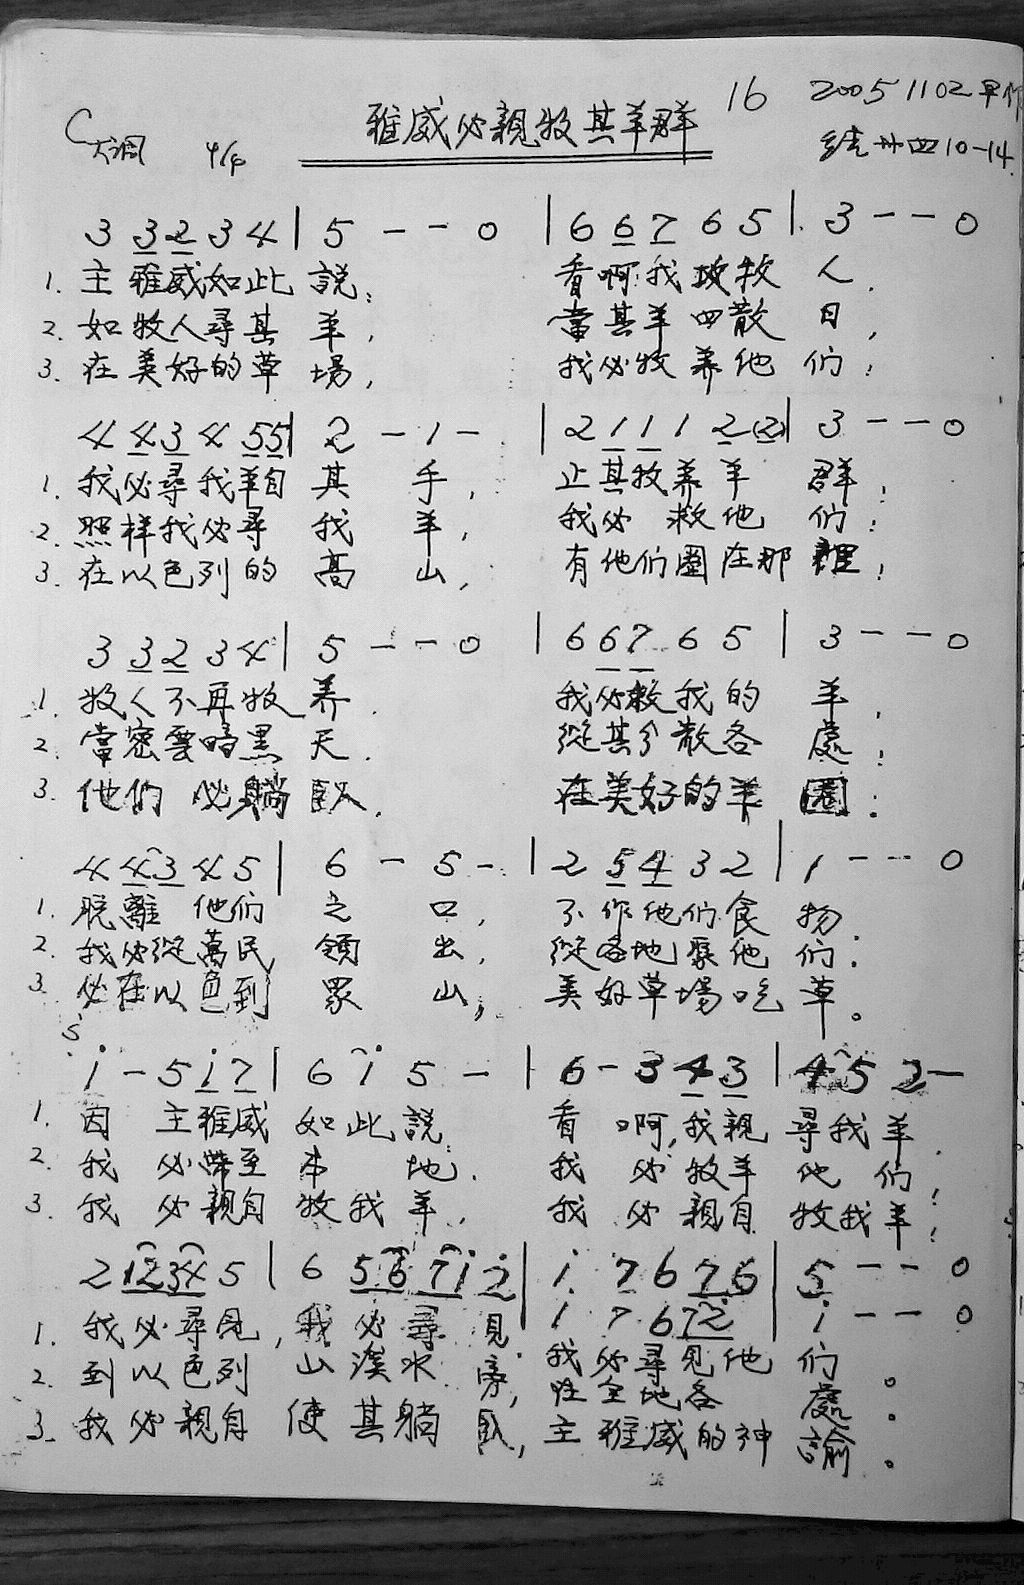 16 2005 11 02 早作
雅威必親牧其羊群
C大調 4/4 結卅四10-14
3 3 2 3 4 | 5 - - 0 | 6 6 7 6 5 | 3 - - 0
1. 主雅威如此說: 看啊我攻牧人,
2. 如牧人尋其羊, 當其羊四散日,
3. 在美好的草場, 我必牧养他们;
4 4 3 4 5 5 | 2 - 1 - | 2 1 1 1 2 (2) | 3 - - 0
1. 我必尋我羊自其手, 止其牧养羊群;
2. 照样我必尋我羊, 我必救他们;
3. 在以色列的高山, 有他们圈在那裡;
3 3 2 3 4 | 5 - - 0 | 6 6 7 6 5 | 3 - - 0
1. 牧人不再牧养, 我必救我的羊,
2. 當密雲暗黑天, 從其分散各處;
3. 他们必躺臥, 在美好的羊圈;
4 4 3 4 5 | 6 - 5 - | 2 5 4 3 2 | 1 - - 0
1. 脱離他们之口, 不作他们食物.
2. 我必從萬民領出, 從各地聚他们;
3. 必在以色列眾山, 美好草場吃草。
i - 5 i 7 | 6 i 5 - | 6 - 3 4 3 | 4 5 2 -
1. 因主雅威如此說: 看啊,我親尋我羊
2. 我必帶至本地. 我必牧羊他们;
3. 我必親自牧我羊, 我必親自牧我羊;
2 1 2 3 4 5 | 6 5 6 7 i 2 | i 7 6 7 6 | 5 - - 0
i 7 6 7 2 | i - - 0
1. 我必尋見,我必尋見. 我必尋見他们。
2. 到以色列山溪水旁, 全地各處。
3. 我必親自使其躺臥, 主雅威的神諭。